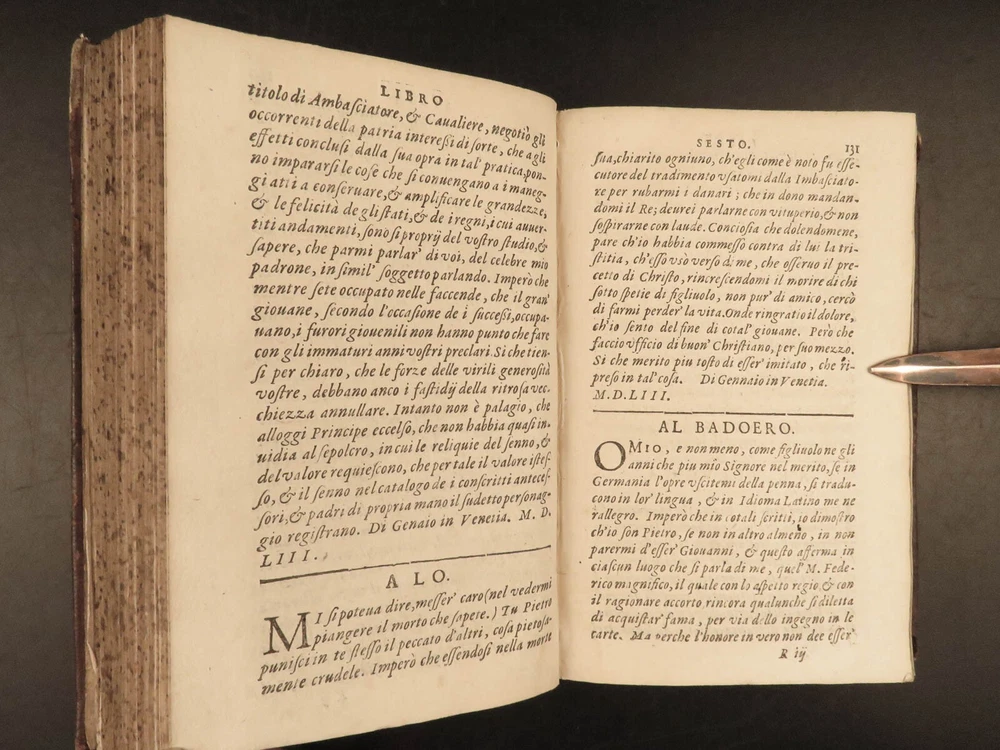 LIBRO
titolo di Ambaſciatore, & Caualiere, negotiò gli
occorrenti della patria intereßi di ſorte, che a gli
effetti concluſi dalla ſua opra in tal' pratica, pon-
no impararſi le coſe che ſi conuengano a i maneg-
gi atti a conſeruare, & amplificare le grandezze,
& le felicità de gli ſtati, & de i regni, i cui auuer-
titi andamenti, ſono ſi proprij del voſtro ſtudio, &
ſapere, che parmi parlar' di voi, del celebre mio
padrone, in ſimil' ſoggetto parlando. Imperò che
mentre ſete occupato nelle faccende, che il gran'
giouane, ſecondo l'occaſione de i ſucceſſi, occupa-
uano, i furori giouenili non hanno punto che fare
con gli immaturi anni voſtri preclari. Si che tien-
ſi per chiaro, che le forze delle virili generoſità
voſtre, debbano anco i faſtidij della ritroſa vec-
chiezza annullare. Intanto non è palagio, che
alloggi Principe eccelſo, che non habbia quaſi in-
uidia al ſepolcro, in cui le reliquie del ſenno, &
del valore requieſcono, che per tale il valore iſteſ-
ſo, & il ſenno nel catalogo de i conſcritti anteceſ-
ſori, & padri di propria mano il ſudetto perſonag-
gio regiſtrano. Di Genaio in Venetia. M. D.
LIII.
A LO.
MI ſi poteua dire, meſſer' caro (nel vedermi
piangere il morto che ſapete.) Tu Pietro
puniſci in te ſteſſo il peccato d'altri, coſa pietoſa-
mente crudele. Imperò che eſſendoſi nella morte
SESTO. 131
ſua, chiarito ogniuno, ch'egli come è noto fu eſſe-
cutore del tradimento vſatomi dalla Imbaſciato-
re per rubarmi i danari; che in dono mandan-
domi il Re; deurei parlarne con vituperio, & non
ſoſpirarne con laude. Concioſia che dolendomene,
pare ch'io habbia commeſſo contra di lui la tri-
ſtitia, ch'eſſo vsò verſo di me, che oſſeruo il pre-
cetto di Chriſto, rincreſcendomi il morire di chi
ſotto ſpetie di figliuolo, non pur' di amico, cercò
di farmi perder' la vita. Onde ringratio il dolore,
ch'io ſento del fine di cotal' giouane. Però che
faccio vfficio di buon' Chriſtiano, per ſuo mezzo.
Si che merito piu toſto di eſſer' imitato, che ri-
preſo in tal' coſa. Di Gennaio in Venetia.
M.D.LIII.
AL BADOERO.
O MIO, e non meno, come figliuolo ne gli
anni che piu mio Signore nel merito, ſe in
Germania l'opre vſcitemi della penna, ſi tradu-
cono in lor' lingua, & in Idioma Latino me ne
rallegro. Imperò che in cotali ſcritti, io dimoſtro
ch'io ſon Pietro, ſe non in altro almeno, in non
parermi d'eſſer' Giouanni, & queſto afferma in
ciaſcun luogo che ſi parla di me, quel' M. Fede-
rico magnifico, il quale con lo aſpetto regio, & con
il ragionare accorto, rincora qualunche ſi diletta
di acquiſtar' fama, per via dello ingegno in le
carte. Ma perche l'honore in vero non dee eſſer'
R iij